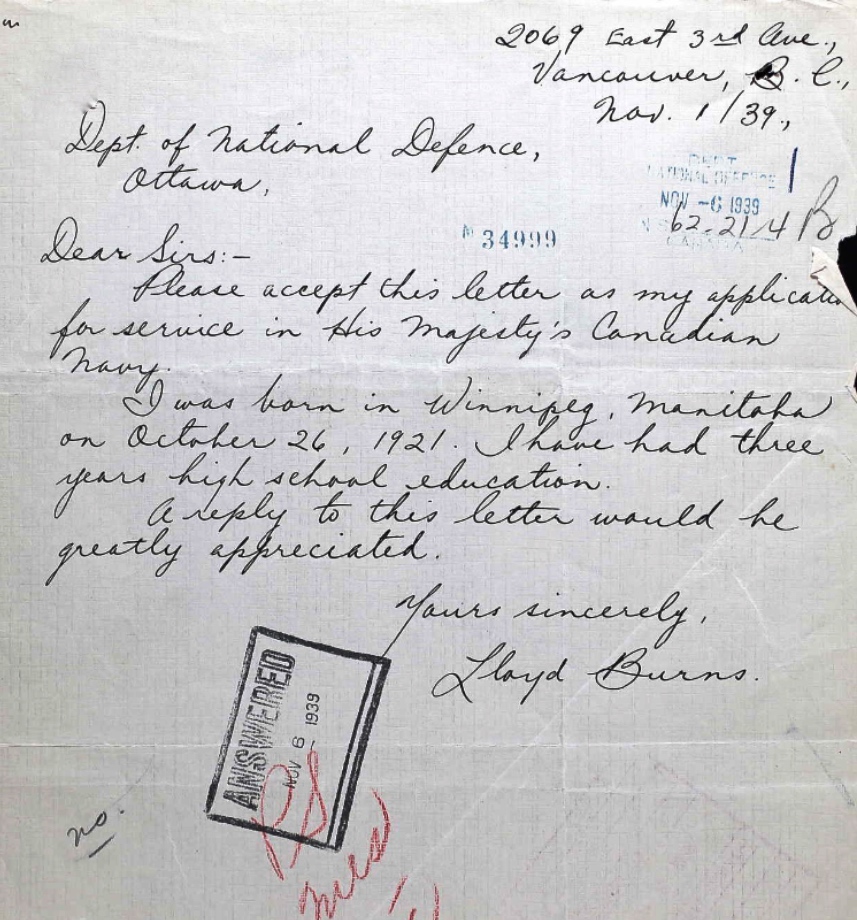 2069 East 3rd Ave.,
Vancouver, B. C.,
Nov. 1/39.,
Dept. of National Defence,
Ottawa,
DEPT
NATIONAL DEFENCE
NOV -6 1939
62-21-4 B
CANADA
No 34999
Dear Sirs:-
Please accept this letter as my application
for service in His Majesty's Canadian
Navy.
I was born in Winnipeg, Manitoba
on October 26, 1921. I have had three
years high school education.
A reply to this letter would be
greatly appreciated.
Yours sincerely,
Lloyd Burns.
ANSWERED
NOV 6 1939
no.